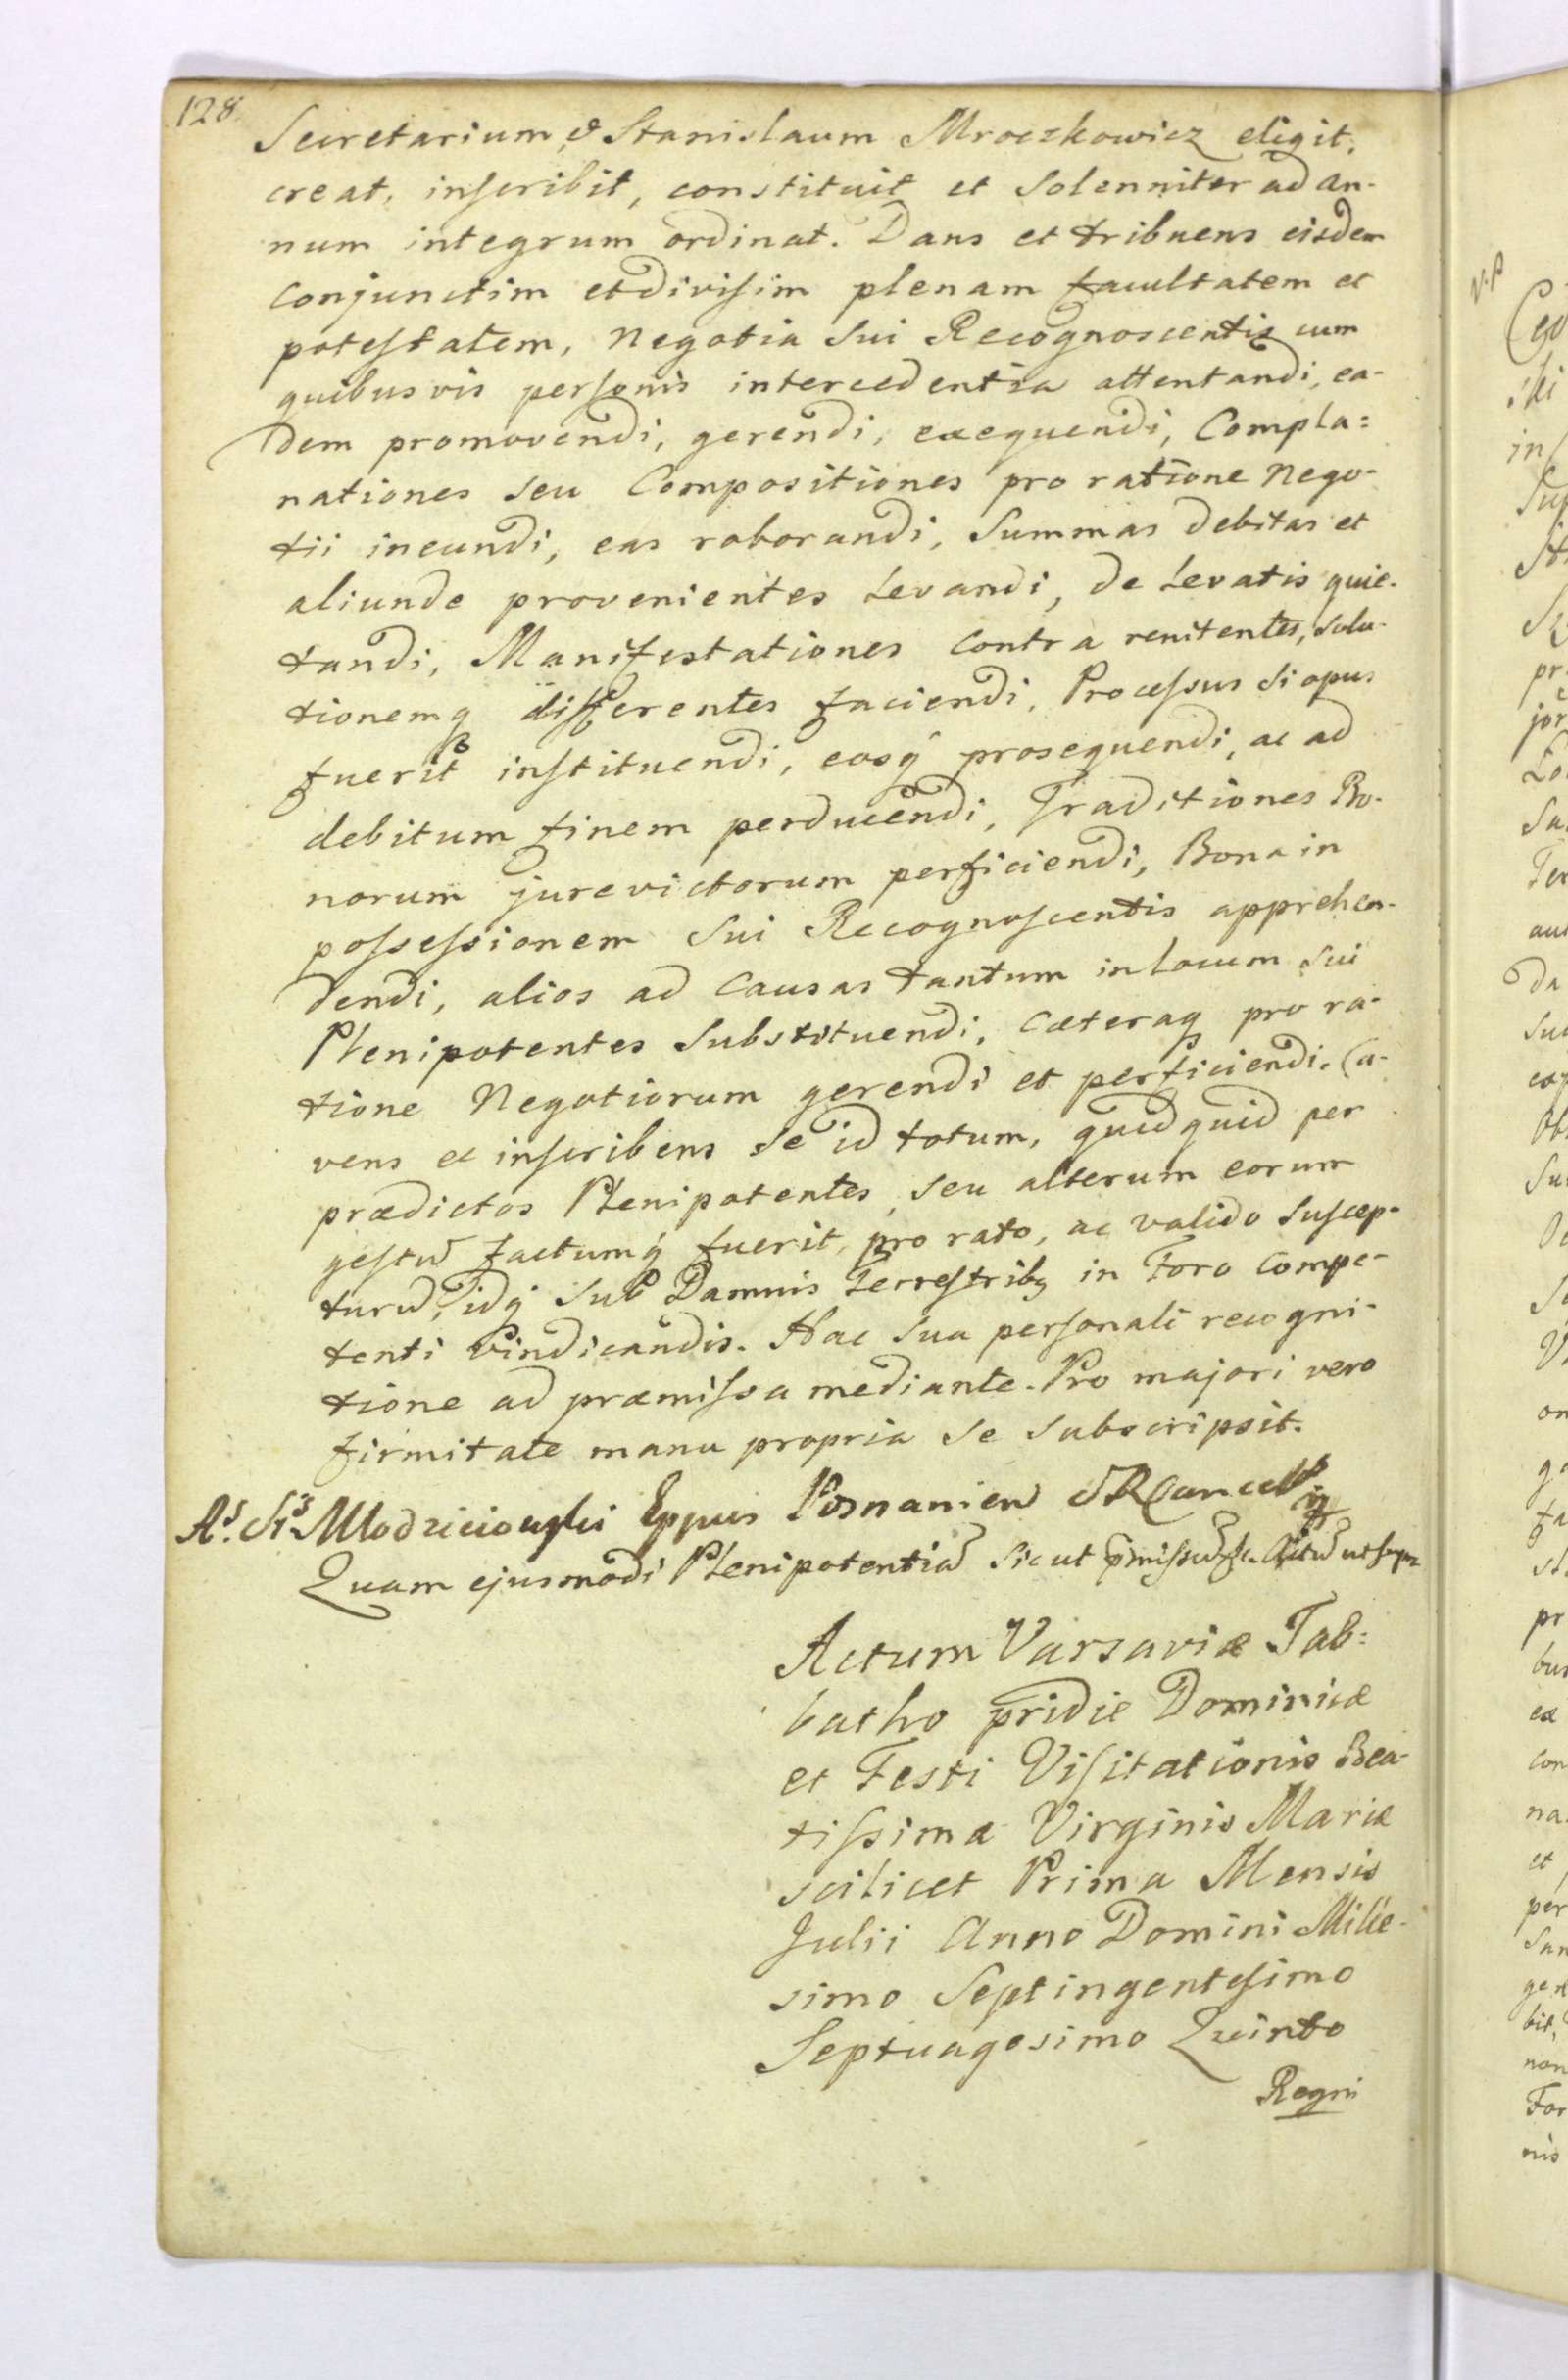 128.
Secretarium, & Stanislaum Mroczkowicz eligit,
creat, inscribit, constituit et Solenniter ad an-
num integrum ordinat. Dans et tribuens eisdem
conjunctim et divisim plenam facultatem et
potestatem, Negotia Sui Recognoscentis cum
quibusvis personis intercedentia attentandi, ea-
dem promovendi, gerendi, exequendi, Compla=
nationes seu Compositiones pro ratione Nego-
tii ineundi, eas roborandi, Summas debitas et
aliunde provenientes Levandi, de Levatis quie-
tandi, Manifestationes contra renitentes, solu-
tionemq differentes faciendi, Processus Si opus
fuerit instituendi, eosq prosequendi, ac ad
debitum finem perducendi, Traditiones Bo-
norum jurevictorum perficiendi, Bona in
possessionem Sui Recognoscentis apprehen-
dendi, alios ad Causas tantum in Locum Sui
Plenipotentes Substituendi, Cæteraq pro ra-
tione Negotiorum gerendi et perficiendi. Ca-
vens et inscribens Se id totum, quidquid per
prædictos Plenipotentes, seu alterum eorum
gestū factumq fuerit, pro rato, ac valido suscep-
turū, idq Sub Damnis Terrestribq in Foro Compe-
tenti vindicandis. Hac Sua personali recogni-
tione ad præmissa mediante. Pro majori vero
firmitate manu propria Se Subscripsit.
As. Sts. Młodzieiowski Eppus Posnanien S R Cancell:
Quam ejusmodi Plenipotentiā Sicut ut
Actum Varsaviæ Sab=
batho pridie Dominicæ
et Festi Visitationis Bea-
tissimæ Virginis Mariæ
scilicet Prima Mensis
Julii Anno Domini Mille-
simo Septingentesimo
Septuagesimo Quinto
Regni